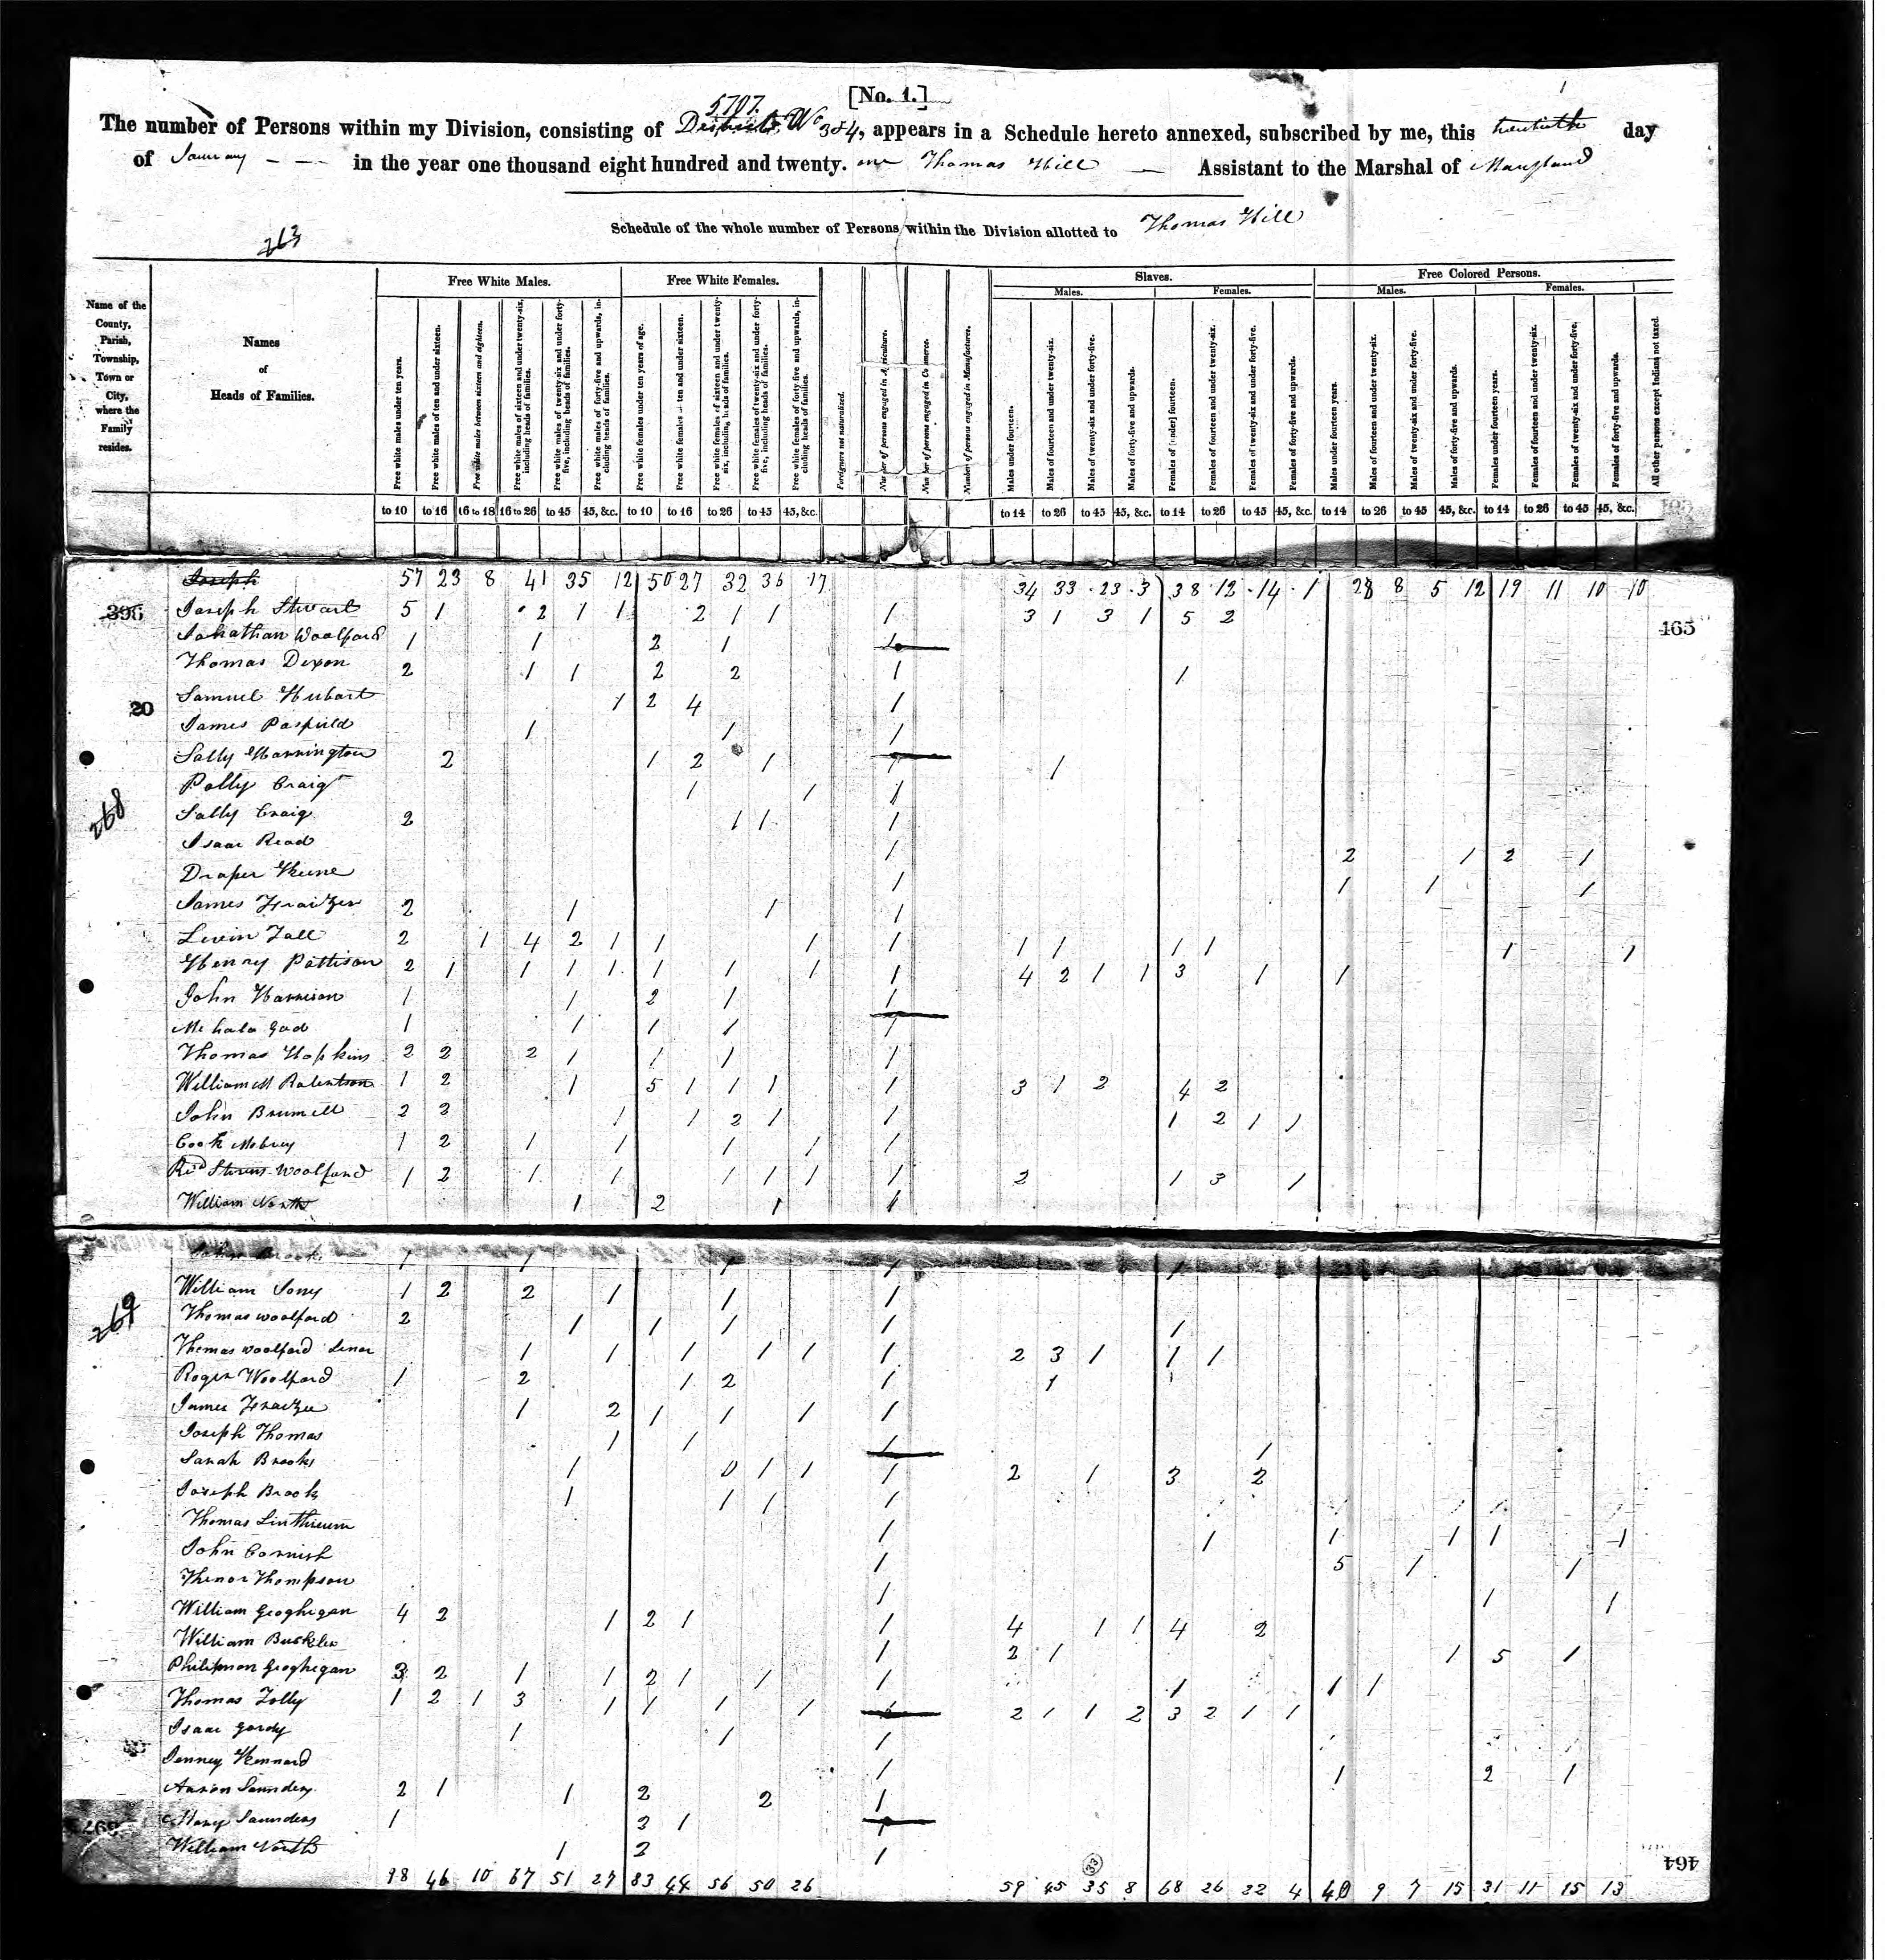 [No. 1.]
5707.
The number of Persons within my Division, consisting of Districts No 3 & 4, appears in a Schedule hereto annexed, subscribed by me, this twentieth day
of January - - - in the year one thousand eight hundred and twenty. one Thomas Hill — Assistant to the Marshal of Maryland
Schedule of the whole number of Persons within the Division allotted to Thomas Hill
263
Name of the County, Parish, Township, Town or City, where the Family resides.
Names of Heads of Families.
Free White Males.
Free white males under ten years.
Free white males of ten and under sixteen.
Free white males between sixteen and eighteen.
Free white males of sixteen and under twenty-six, including heads of families.
Free white males of twenty-six and under forty-five, including heads of families.
Free white males of forty-five and upwards, including heads of families.
Free White Females.
Free white females under ten years of age.
Free white females of ten and under sixteen.
Free white females of sixteen and under twenty-six, including heads of families.
Free white females of twenty-six and under forty-five, including heads of families.
Free white females of forty five and upwards, including heads of families.
Foreigners not naturalized.
Number of persons engaged in Agriculture.
Number of persons engaged in Commerce.
Number of persons engaged in Manufactures.
Slaves.
Males.
Males under fourteen.
Males of fourteen and under twenty-six.
Males of twenty-six and under forty-five.
Males of forty-five and upwards.
Females.
Females of [under] fourteen.
Females of fourteen and under twenty-six.
Females of twenty-six and under forty-five.
Females of forty-five and upwards.
Free Colored Persons.
Males.
Males under fourteen years.
Males of fourteen and under twenty-six.
Males of twenty-six and under forty-five.
Males of forty-five and upwards.
Females.
Females under fourteen years.
Females of fourteen and under twenty-six.
Females of twenty-six and under forty-five.
Females of forty-five and upwards.
All other persons except Indians not taxed.
to 10 to 16 16 to 18 16 to 26 to 45 45, &c. to 10 to 16 to 26 to 45 45, &c. to 14 to 26 to 45 45, &c. to 14 to 26 to 45 45, &c. to 14 to 26 to 45 45, &c. to 14 to 26 to 45 45, &c.
Joseph 57 23 8 41 35 12 50 27 32 36 17 34 33 23 3 38 12 14 1 28 8 5 12 19 11 10 10
396 Joseph Stewart 5 1 2 1 1 2 1 1 1 3 1 3 1 5 2 465
Jonathan Woolford 1 1 2 1 1
Thomas Dixon 2 1 1 2 2 1 1
20 Samuel Hubart 1 2 4 1
James Pasfield 1 1 1
Sally Harrington 2 1 2 1 1 1
Polly Craig 1 1 1
268 Sally Craig 2 1 1 1
Isaac Read 1 2 1 2 1
Draper Keene 1 1 1 1
James Frazier 2 1 1 1
Levin Tall 2 1 4 2 1 1 1 1 1 1 1 1 1 1
Henry Pattison 2 1 1 1 1 1 1 1 1 4 2 1 1 3 1 1
John Harrison 1 1 2 1 1
1 1 1 1 1
Thomas Hopkins 2 2 2 1 1 1 1
William 1 2 1 5 1 1 1 1 3 1 2 4 2
John 2 2 1 1 2 1 1 1 2 1 1
Cook 1 2 1 1 1 1 1
Woolford 1 2 1 1 1 1 1 1 2 1 3 1
William North 1 2 1 1
John Brook 1 1 1 1 1
William 1 2 2 1 1 1
269 Thomas Woolford 2 1 1 1 1 1
Thomas Woolford Senor 1 1 1 1 1 1 2 3 1 1 1
Roger Woolford 1 2 1 2 1 1
James Frazier 1 2 1 1 1 1
Joseph Thomas 1 1 1 1
Sarah Brooks 1 0 1 1 1 2 1 3 2
Joseph Brook 1 1 1 1
Thomas Linthicum 1 1 1 1 1 1
John Cornish 1 5 1 1
Thompson 1 1 1
William Geoghegan 4 2 1 2 1 4 1 1 4 2
William 1 2 1 1 5 1
Philemon Geoghegan 3 2 1 1 2 1 1 1 1 1 1
Thomas Tolly 1 2 1 3 1 1 1 1 1 2 1 1 2 3 2 1 1
Isaac Gordy 1 1 1
Jenney Kennard 1 1 2 1
Aaron Saunders 2 1 1 2 2 1
Mary Saunders 1 2 1 1
William North 1 2 1
98 46 10 67 51 27 83 44 56 50 26 59 45 35 8 68 26 22 4 40 9 7 15 31 11 15 13
33
464